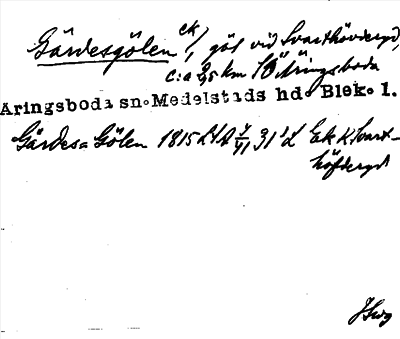 Gärdesgölen ek/, göl vid Svarthövderyd,
c:a 2,5 km SÖ Äringsboda
Aringsboda sn. Medelstads hd. Blek. 1.
Gärdes=Gölen 1815 LSA 31 Ek K Svart-
höfderyd